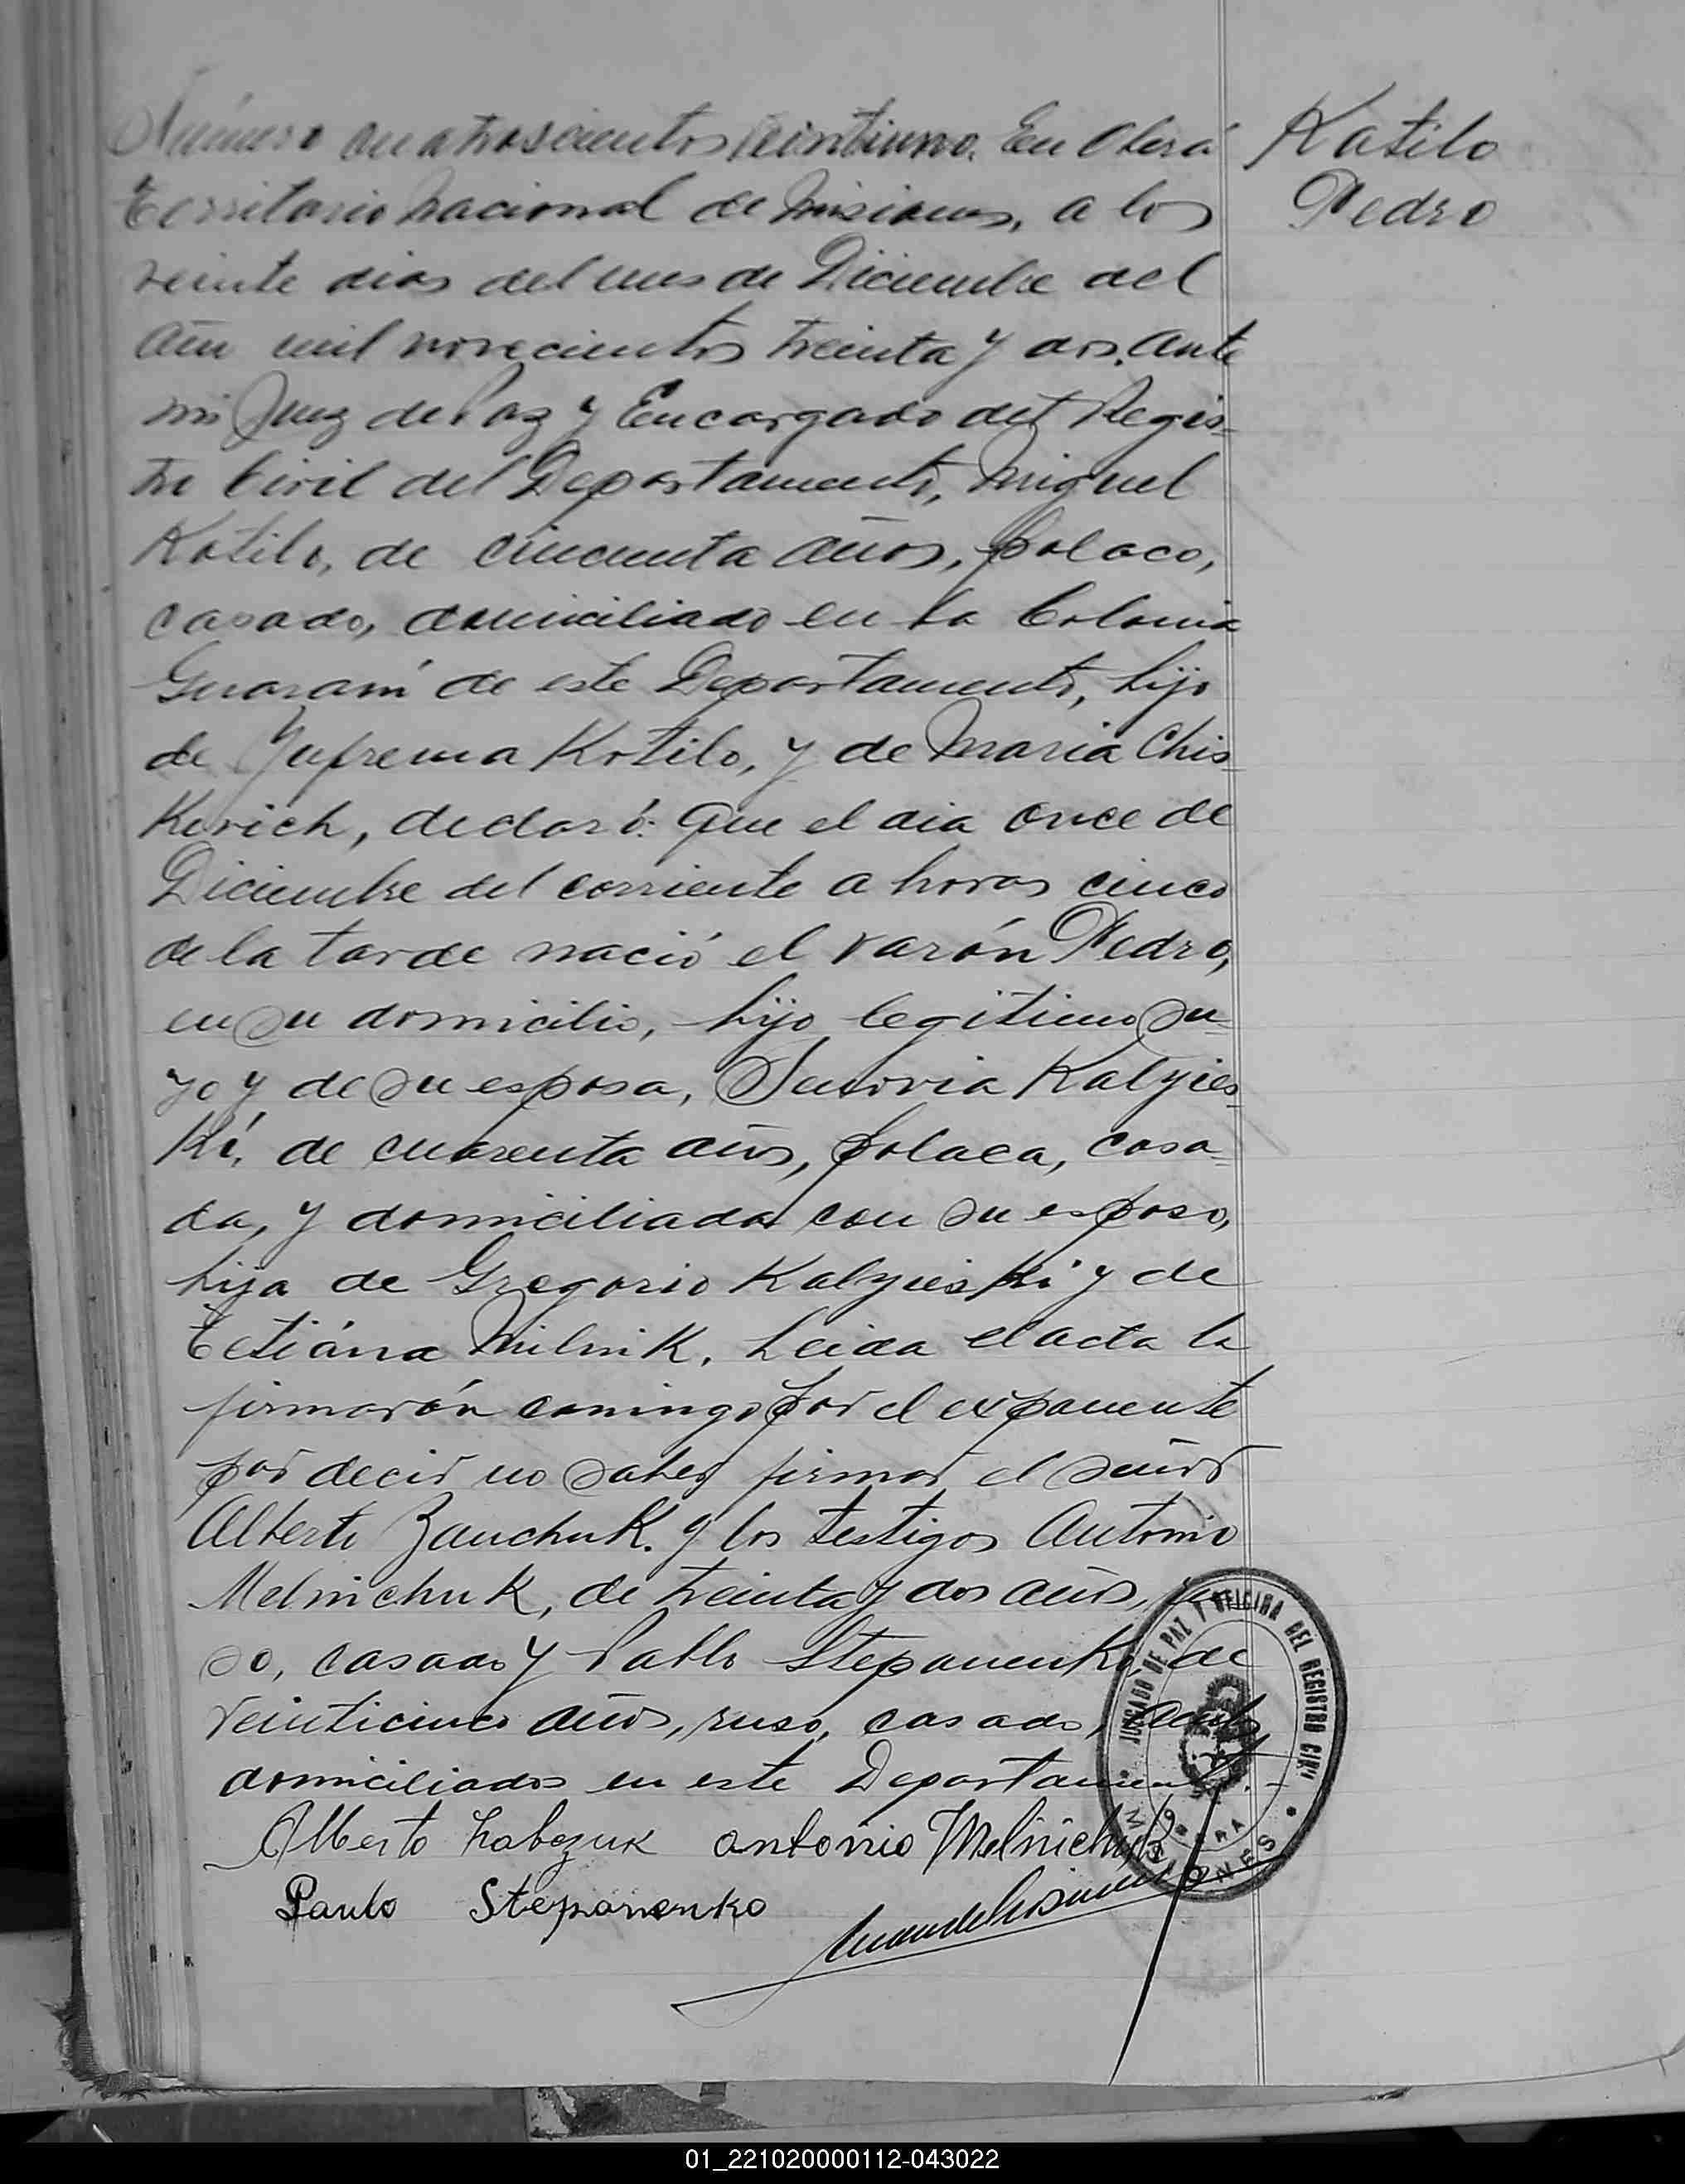 Número cuatroscientos veintiuno. En Oberá
Katilo
Pedro
Territorio Nacional de Misiones, a los
veinte dias del mes de Diciembre del
año mil novecientos treinta y dos. Ante
mi Juez de Paz y Encargado del Regis-
tro Civil del Departamento, Miguel
Katilo, de cincuenta años, polaco,
casado, domiciliado en la Colonia
Guaraní de este Departamento, hijo
de Yufrema Kotilo, y de Maria Chis
Kevich, declaró: Que el dia once de
Diciembre del corriente a horas cinco
de la tarde nació el varón Pedro,
en su domicilio, hijo legitimo su-
yo y de su esposa, Kalyies
Ki, de cuarenta años, polaca, casa-
da, y domiciliada con su esposo,
hija de Gregorio Kalyieski y de
Tetiána Milnik. Leida el acta la
firmarón conmigo por el exponente
por decir no saber firmar el señor
Alberto Zauchuk. y los testigos Antonio
Melnichuk, de treinta y dos años, ru
so, casado y Pablo Stepanenko, de
veinticinco años, ruso, casado,
domiciliados en este Departamento.-
Alberto antonio Melnichuk
Paulo Stepanenko
JUZGADO DE PAZ Y OFICINA DEL REGISTRO CIVIL
MISIONES
01_221020000112-043022